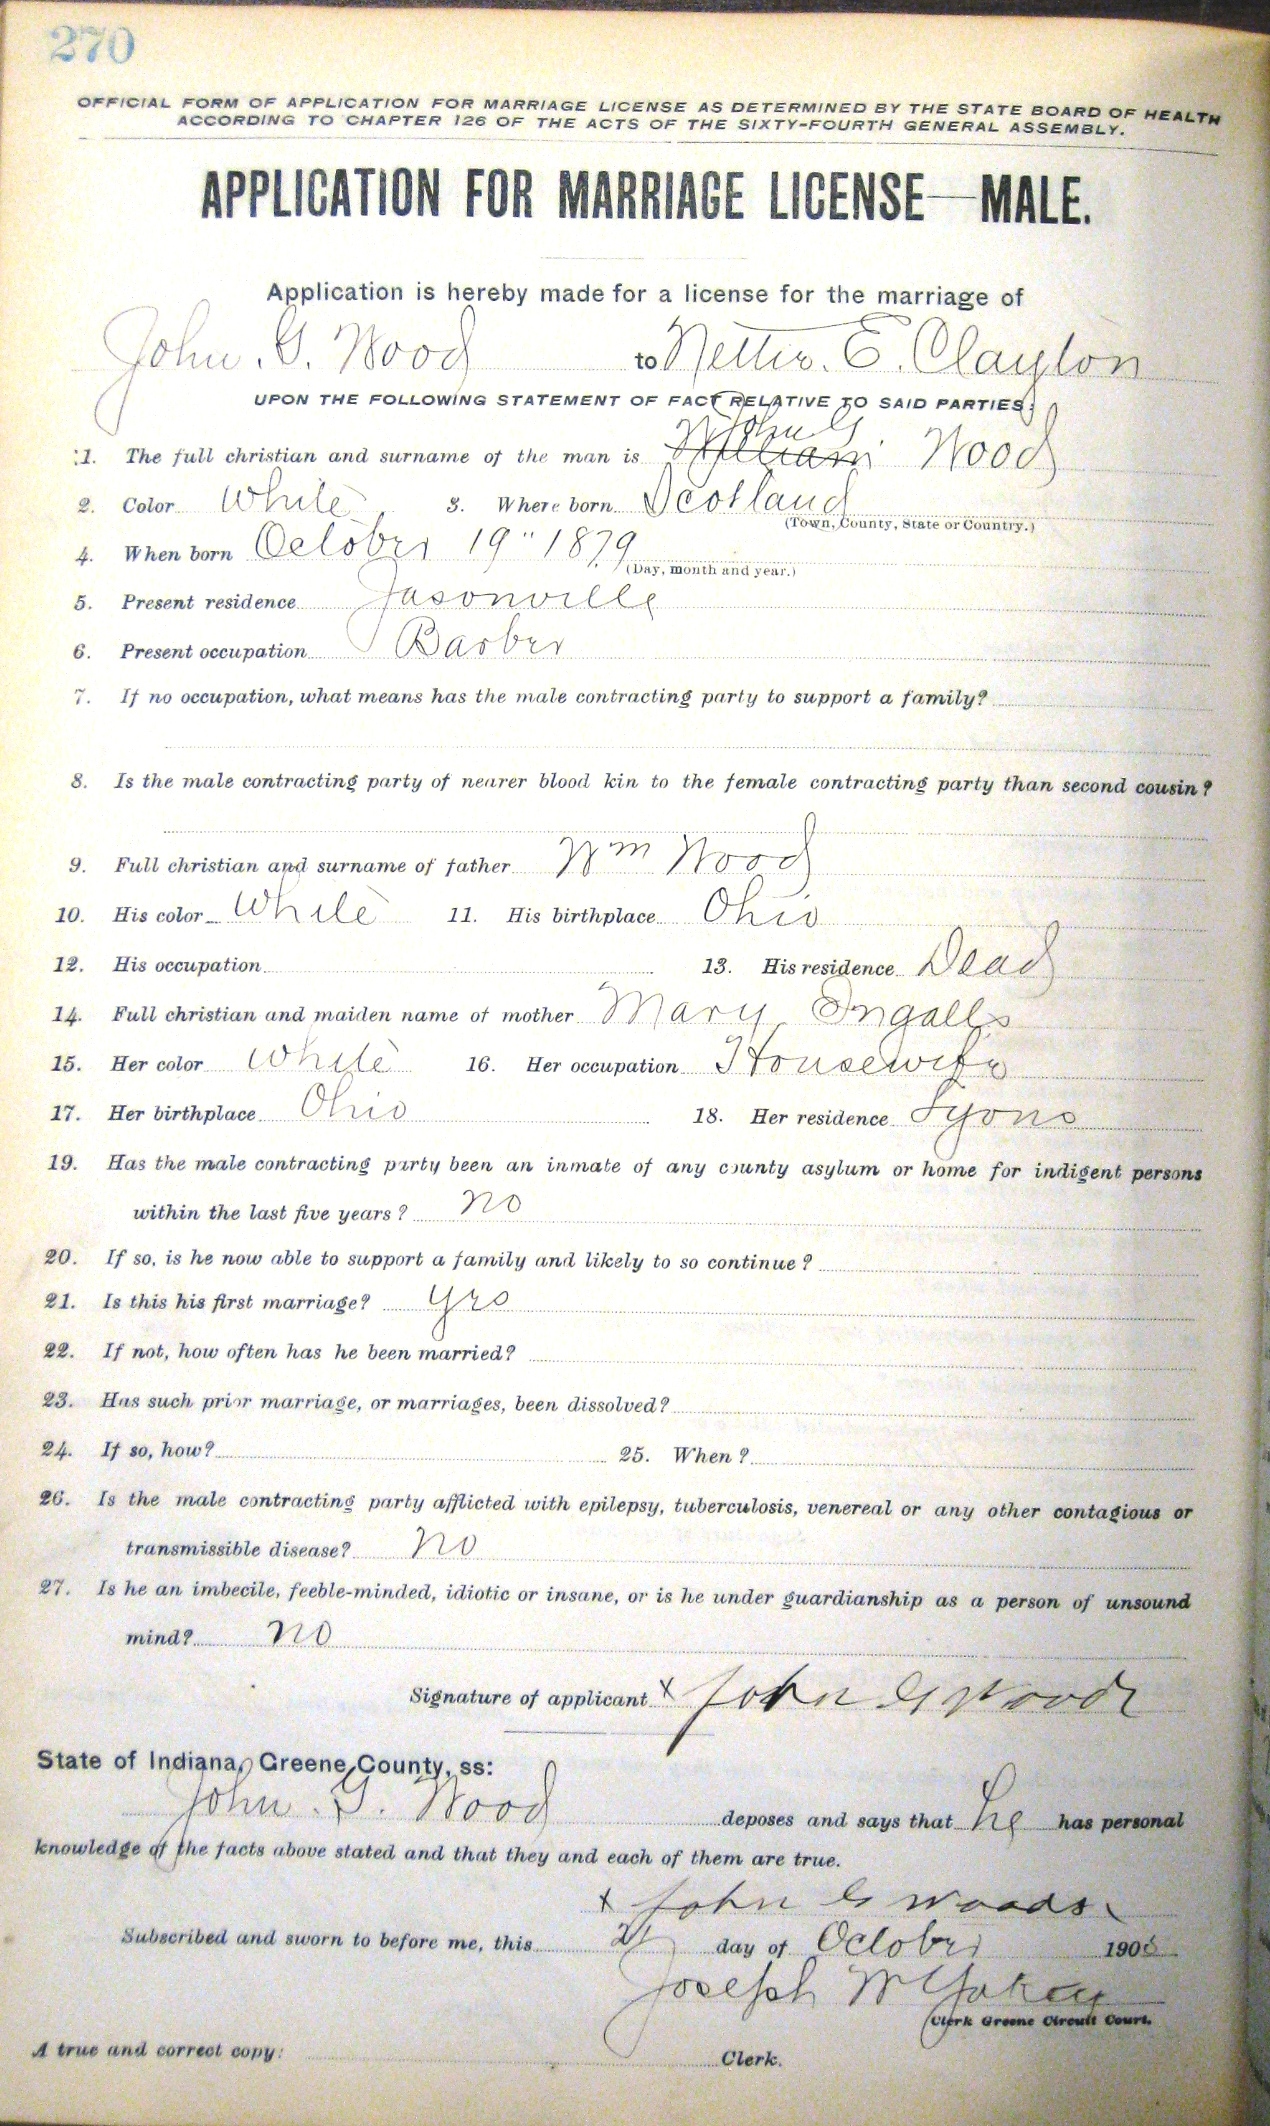 270
OFFICIAL FORM OF APPLICATION FOR MARRIAGE LICENSE AS DETERMINED BY THE STATE BOARD OF HEALTH
ACCORDING TO CHAPTER 126 OF THE ACTS OF THE SIXTY-FOURTH GENERAL ASSEMBLY.
APPLICATION FOR MARRIAGE LICENSE—MALE.
Application is hereby made for a license for the marriage of
John. G. Wood to Nettie. E. Clayton
UPON THE FOLLOWING STATEMENT OF FACT RELATIVE TO SAID PARTIES:
John G
1. The full christian and surname of the man is William Wood
2. Color White 3. Where born Scotland
(Town, County, State or Country.)
4. When born October 19" 1879
(Day, month and year.)
5. Present residence Jasonville
6. Present occupation Barber
7. If no occupation, what means has the male contracting party to support a family?
8. Is the male contracting party of nearer blood kin to the female contracting party than second cousin?
9. Full christian and surname of father Wm Wood
10. His color White 11. His birthplace Ohio
12. His occupation 13. His residence Dead
14. Full christian and maiden name of mother Mary Ingalls
15. Her color White 16. Her occupation Housewife
17. Her birthplace Ohio 18. Her residence Lyons
19. Has the male contracting party been an inmate of any county asylum or home for indigent persons
within the last five years? no
20. If so, is he now able to support a family and likely to so continue?
21. Is this his first marriage? yes
22. If not, how often has he been married?
23. Has such prior marriage, or marriages, been dissolved?
24. If so, how? 25. When?
26. Is the male contracting party afflicted with epilepsy, tuberculosis, venereal or any other contagious or
transmissible disease? no
27. Is he an imbecile, feeble-minded, idiotic or insane, or is he under guardianship as a person of unsound
mind? no
Signature of applicant x John G Wood
State of Indiana, Greene County, ss:
John. G. Wood deposes and says that he has personal
knowledge of the facts above stated and that they and each of them are true.
x John G Woods
Subscribed and sworn to before me, this day of October 190
Joseph W Yakey
Clerk Greene Circuit Court.
A true and correct copy: Clerk.